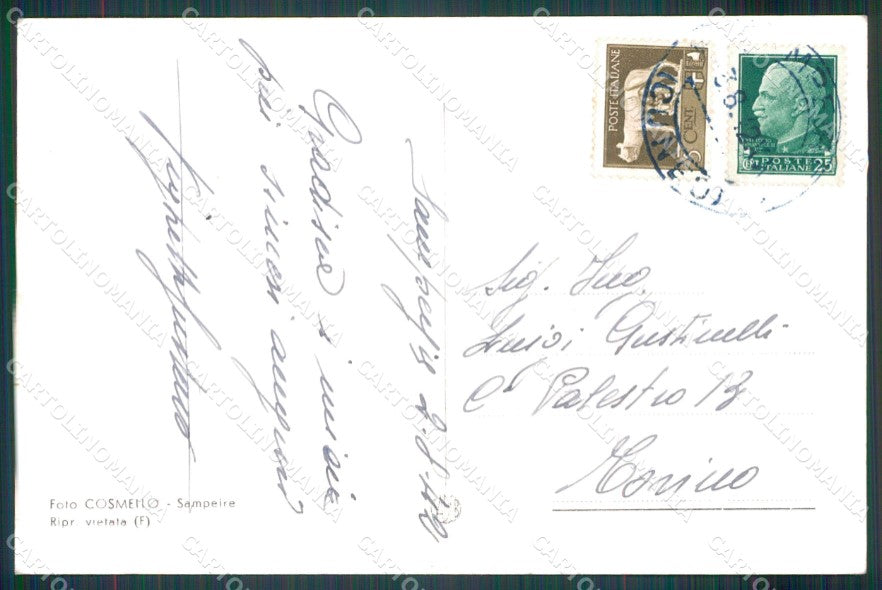 Sampeyre 2.8.42
Gradisca i miei
più sinceri auguroni
POSTE ITALIANE
5 CENT.
CENT POSTE ITALIANE 25
Sig. Ing.
Luigi Gustinelli
C. Palestro 13
Torino
Foto COSMELLO - Sampeire
Ripr. vietata (F)
CARTOLINOMANIA